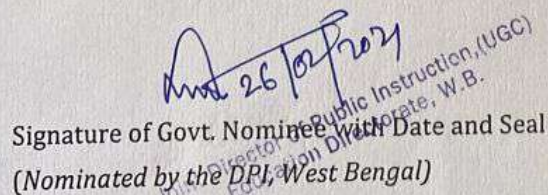 26/02/2021
Director of Public Instruction, (UGC)
Education Directorate, W.B.
Signature of Govt. Nominee with Date and Seal
(Nominated by the DPI, West Bengal)